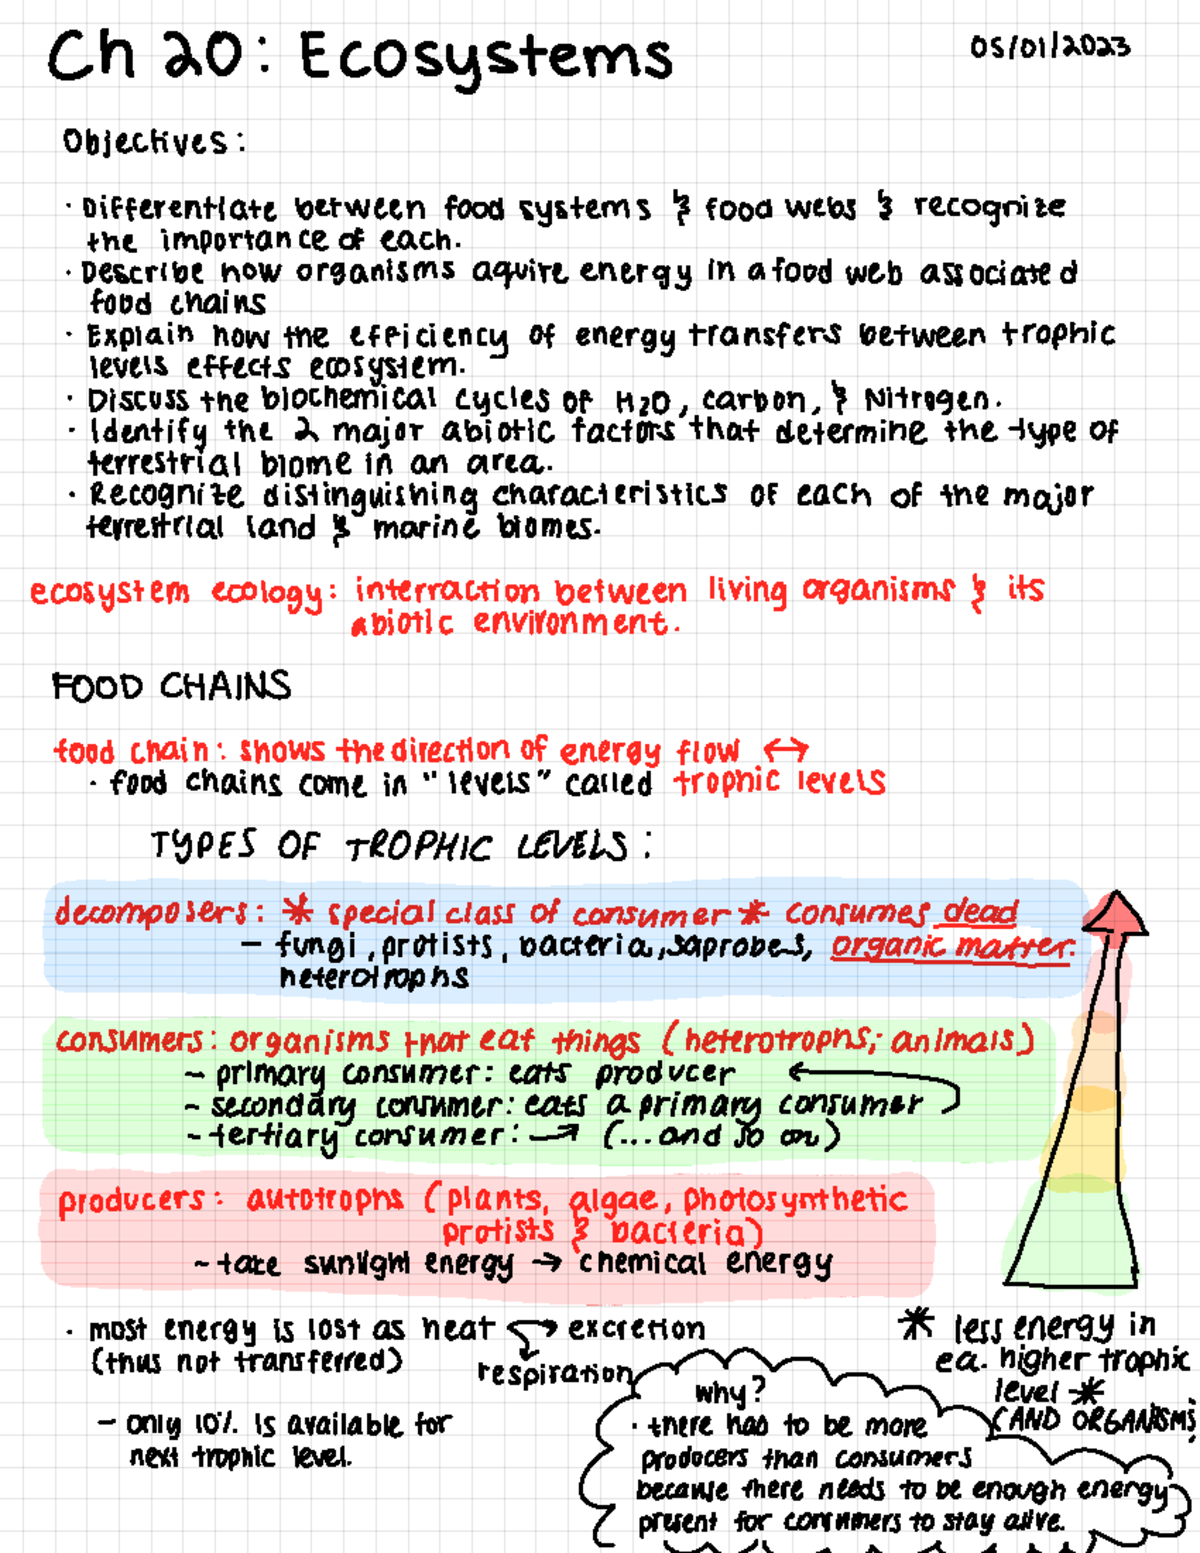 Ch 20: Ecosystems
05/01/2023
Objectives:
· Differentiate between food systems & food webs & recognize
the importance of each.
· Describe how organisms aquire energy in a food web associated
food chains
· Explain how the efficiency of energy transfers between trophic
levels effects ecosystem.
· Discuss the biochemical cycles of H2O, carbon, & Nitrogen.
· Identify the 2 major abiotic factors that determine the type of
terrestrial biome in an area.
· Recognize distinguishing characteristics of each of the major
terrestrial land & marine biomes.
ecosystem ecology: interraction between living organisms & its
abiotic environment.
FOOD CHAINS
food chain: shows the direction of energy flow ↔
· food chains come in "levels" called trophic levels
TYPES OF TROPHIC LEVELS:
decomposers: * special class of consumer * consumes dead
- fungi, protists, bacteria, saprobes, organic matter.
heterotrophs
consumers: organisms that eat things (heterotrophs; animals)
- primary consumer: eats producer
- secondary consumer: eats a primary consumer
- tertiary consumer: → (...and so on)
producers: autotrophs (plants, algae, photosynthetic
protists & bacteria)
- take sunlight energy → chemical energy
· most energy is lost as heat → excretion
(thus not transferred)
respiration
- only 10% is available for
next trophic level.
* less energy in
ea. higher trophic
level *
(AND ORGANISMS)
why?
· there has to be more
producers than consumers
because there needs to be enough energy
present for consumers to stay alive.